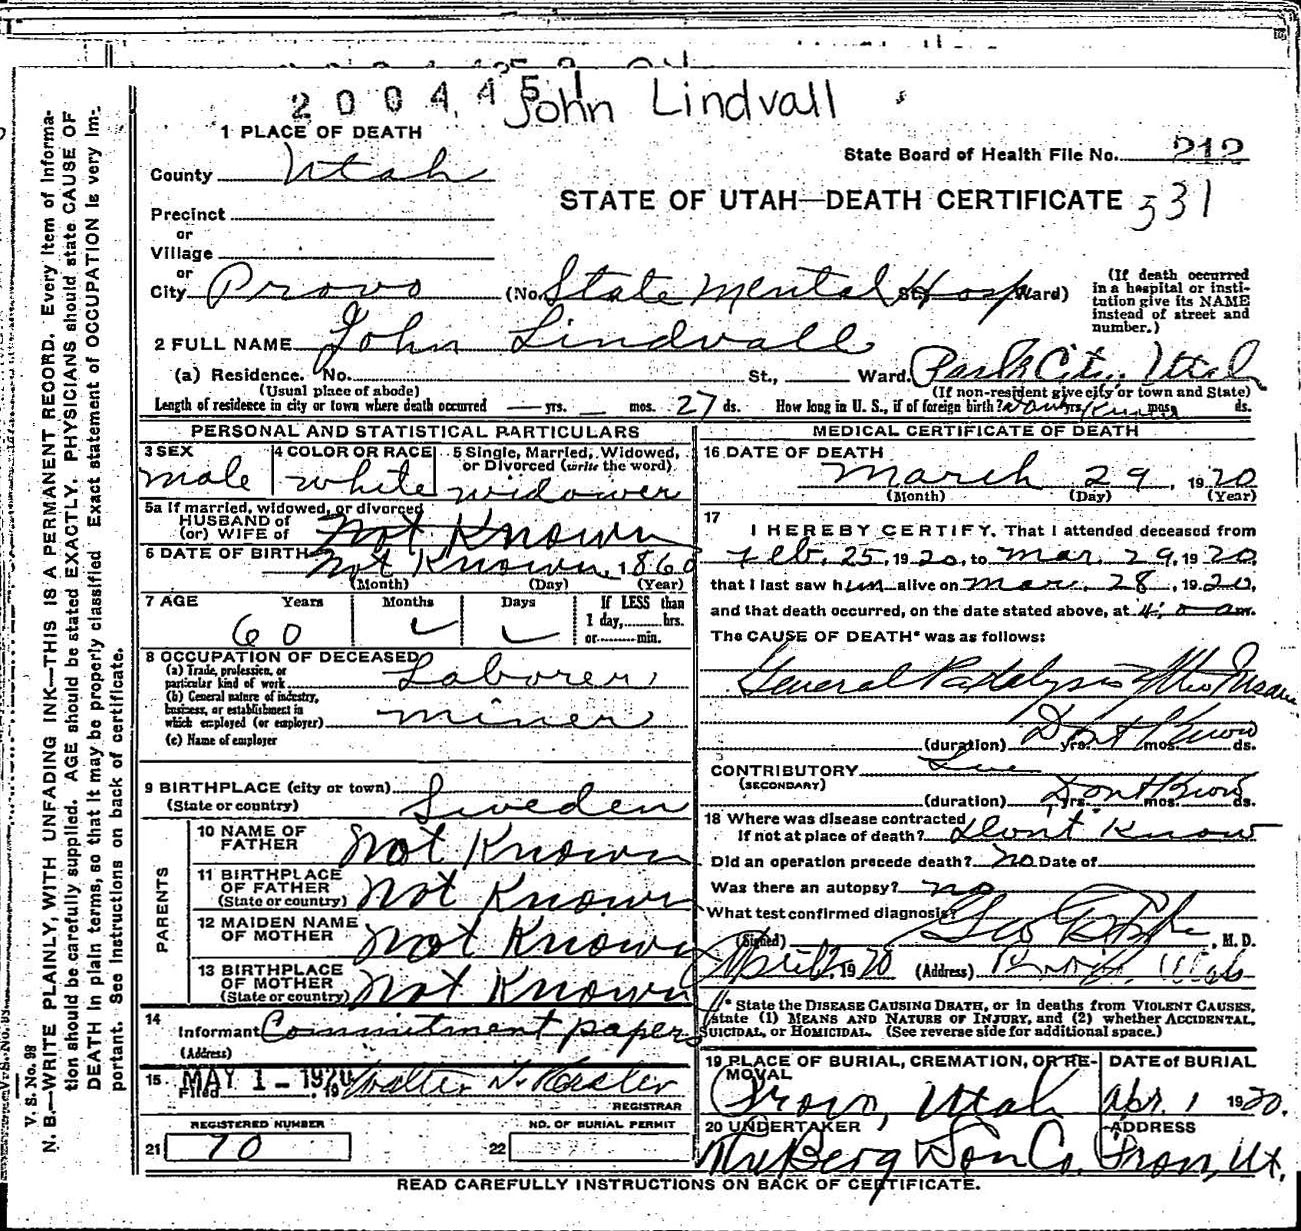 2004451
John Lindvall
1 PLACE OF DEATH
State Board of Health File No. 212
County Utah
STATE OF UTAH—DEATH CERTIFICATE 531
Precinct
or
Village
or
City Provo (No. State Mental Hosp St., Ward)
(If death occurred in a hospital or institution give its NAME instead of street and number.)
2 FULL NAME John Lindvall
(a) Residence. No. St., Ward. Park City, Utah
(Usual place of abode) (If non-resident give city or town and State)
Length of residence in city or town where death occurred — yrs. — mos. 27 ds. How long in U. S., if of foreign birth? Dont yrs. Know mos. ds.
PERSONAL AND STATISTICAL PARTICULARS
3 SEX
male
4 COLOR OR RACE
white
5 Single, Married, Widowed, or Divorced (write the word)
widower
5a If married, widowed, or divorced
HUSBAND of
(or) WIFE of
Not Known
6 DATE OF BIRTH Not Known, 1860
(Month) (Day) (Year)
7 AGE Years Months Days If LESS than 1 day, hrs. or min.
60
8 OCCUPATION OF DECEASED
(a) Trade, profession, or particular kind of work Laborer
(b) General nature of industry, business, or establishment in which employed (or employer) miner
(c) Name of employer
9 BIRTHPLACE (city or town)
(State or country) Sweden
PARENTS
10 NAME OF FATHER Not Known
11 BIRTHPLACE OF FATHER (State or country) Not Known
12 MAIDEN NAME OF MOTHER Not Known
13 BIRTHPLACE OF MOTHER (State or country) Not Known
14
Informant Commitment papers
(Address)
15 Filed MAY 1 - 1920, 19 Walter
REGISTRAR
REGISTERED NUMBER
21 70
NO. OF BURIAL PERMIT
22
MEDICAL CERTIFICATE OF DEATH
16 DATE OF DEATH
March 29, 1920
(Month) (Day) (Year)
17
I HEREBY CERTIFY, That I attended deceased from
Feb. 25, 1920, to Mar. 29, 1920,
that I last saw him alive on Mar. 28, 1920,
and that death occurred, on the date stated above, at am.
The CAUSE OF DEATH* was as follows:
General Paralysis of the Insane
(duration) Dont yrs. Know mos. ds.
CONTRIBUTORY Lues
(SECONDARY)
(duration) Dont yrs. Know mos. ds.
18 Where was disease contracted
If not at place of death? Dont Know
Did an operation precede death? no Date of
Was there an autopsy? no
What test confirmed diagnosis?
(Signed) Geo , M. D.
April , 1920 (Address) Provo, Utah
* State the DISEASE CAUSING DEATH, or in deaths from VIOLENT CAUSES, state (1) MEANS AND NATURE OF INJURY, and (2) whether ACCIDENTAL, SUICIDAL, or HOMICIDAL. (See reverse side for additional space.)
19 PLACE OF BURIAL, CREMATION, OR REMOVAL
Provo, Utah
DATE of BURIAL
Apr. 1 1920.
20 UNDERTAKER
Berg Son Co.
ADDRESS
Provo, Ut.
READ CAREFULLY INSTRUCTIONS ON BACK OF CERTIFICATE.
V. S. No. 98
N. B.—WRITE PLAINLY, WITH UNFADING INK—THIS IS A PERMANENT RECORD. Every item of Informa-
tion should be carefully supplied. AGE should be stated EXACTLY. PHYSICIANS should state CAUSE OF
DEATH in plain terms, so that it may be properly classified. Exact statement of OCCUPATION is very Im-
portant. See Instructions on back of certificate.